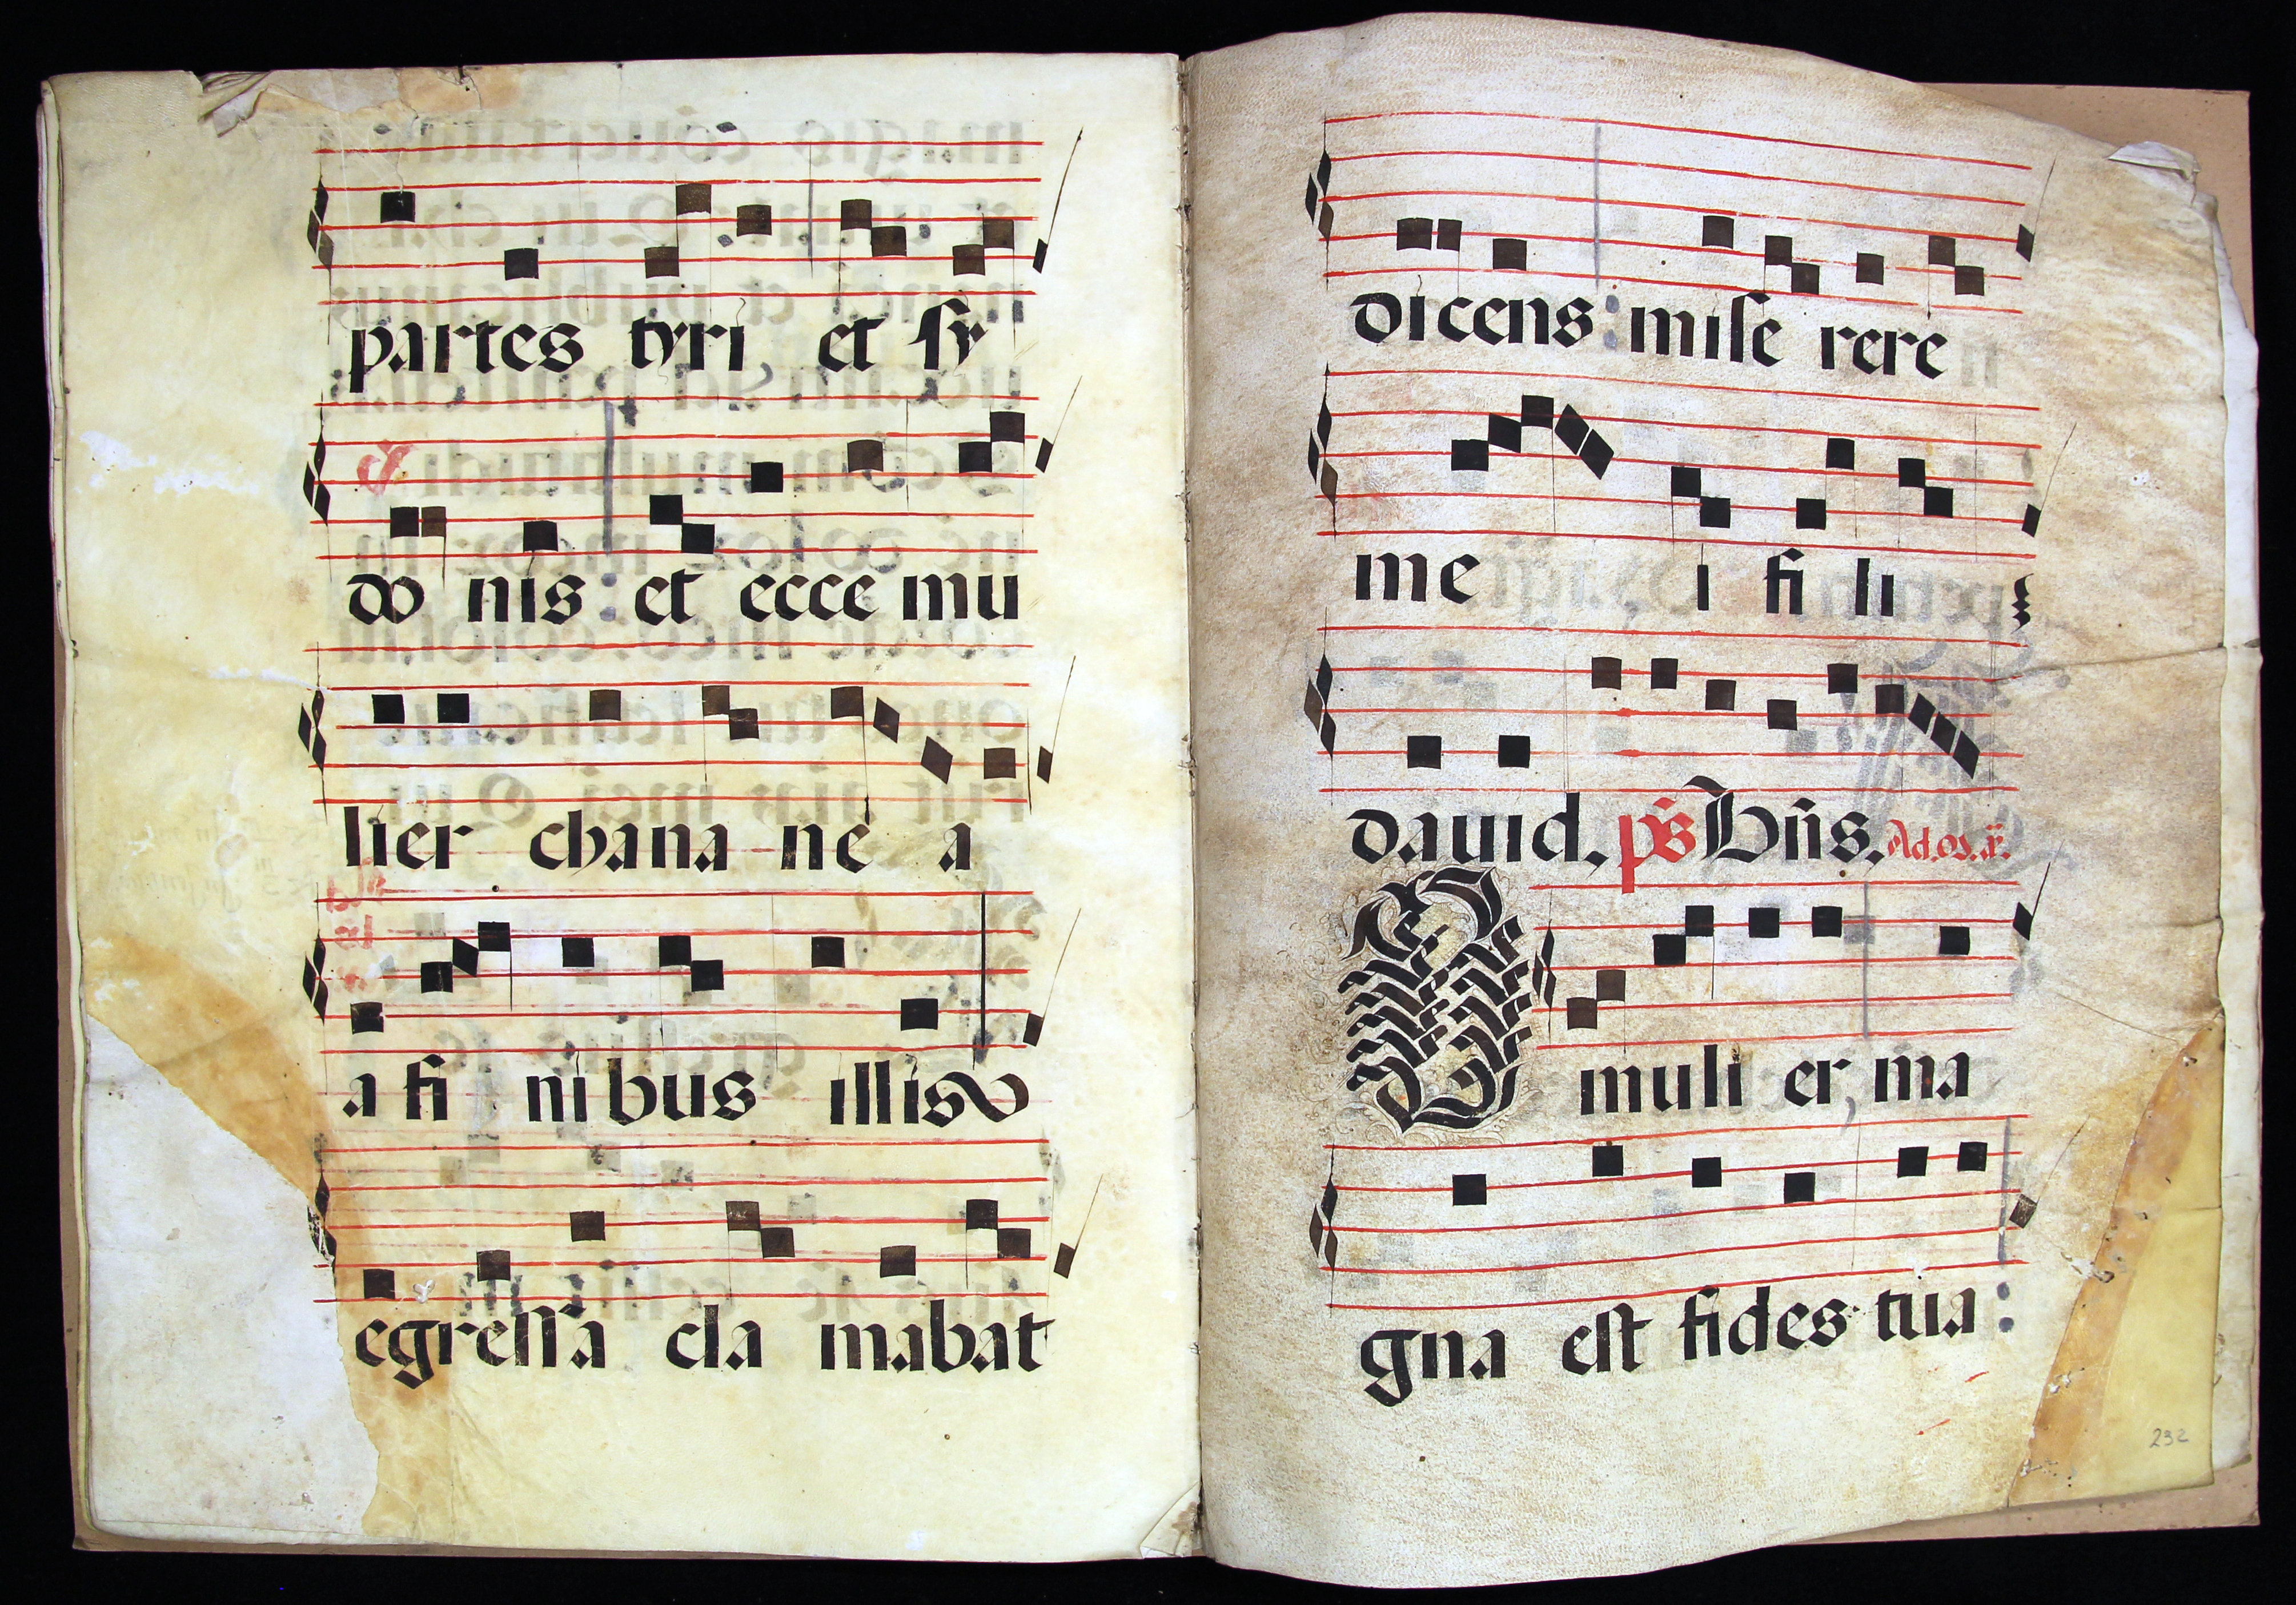 partes tyri et ſy
do nis : et ecce mu
lier chana ne a
a fi ni bus illis
egreſſa cla mabat
dicens : miſe rere
me i fi li
dauid. ps Bn̄s. Ad
O muli er, ma
gna eſt fides tua :
232